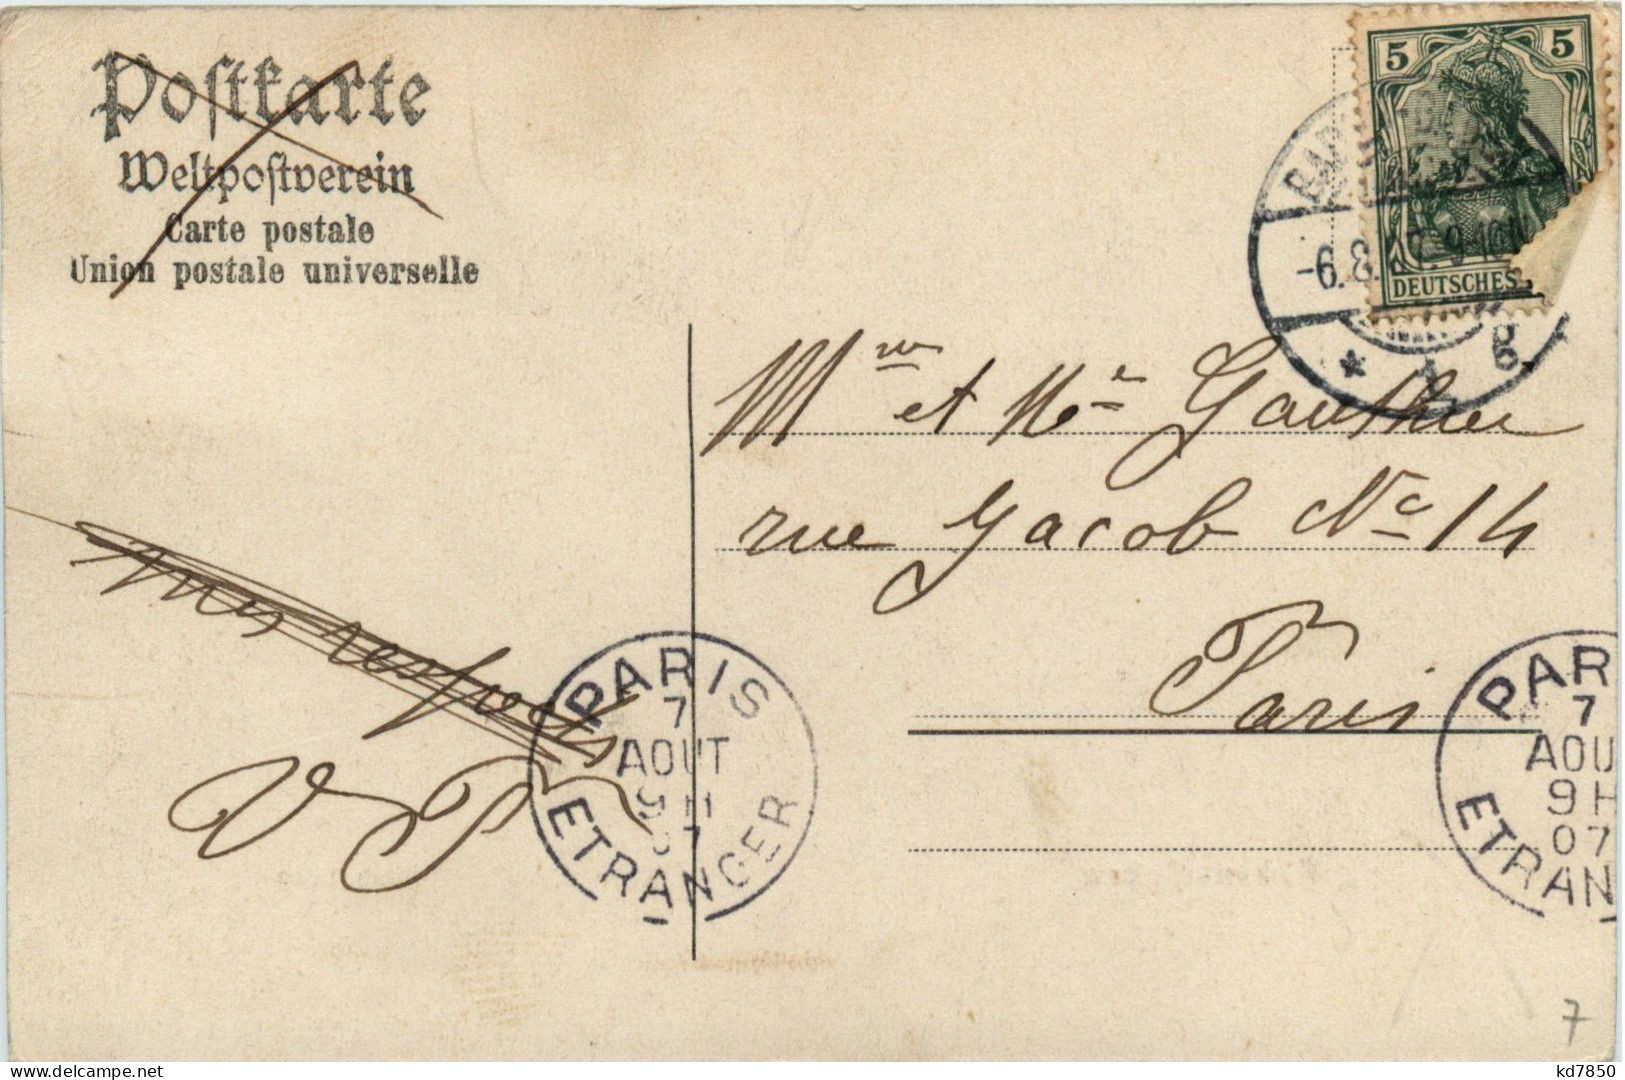 Postkarte
Weltpostverein
Carte postale
Union postale universelle
5 5
DEUTSCHES
-6.8.07. 9-10N
Mr et Me Gauthier
rue Jacob No 14
Paris
mes respects
VP
PARIS
7
AOUT
9H
07
ETRANGER
PAR
7
AOU
9H
07
ETRAN
7
kd7850